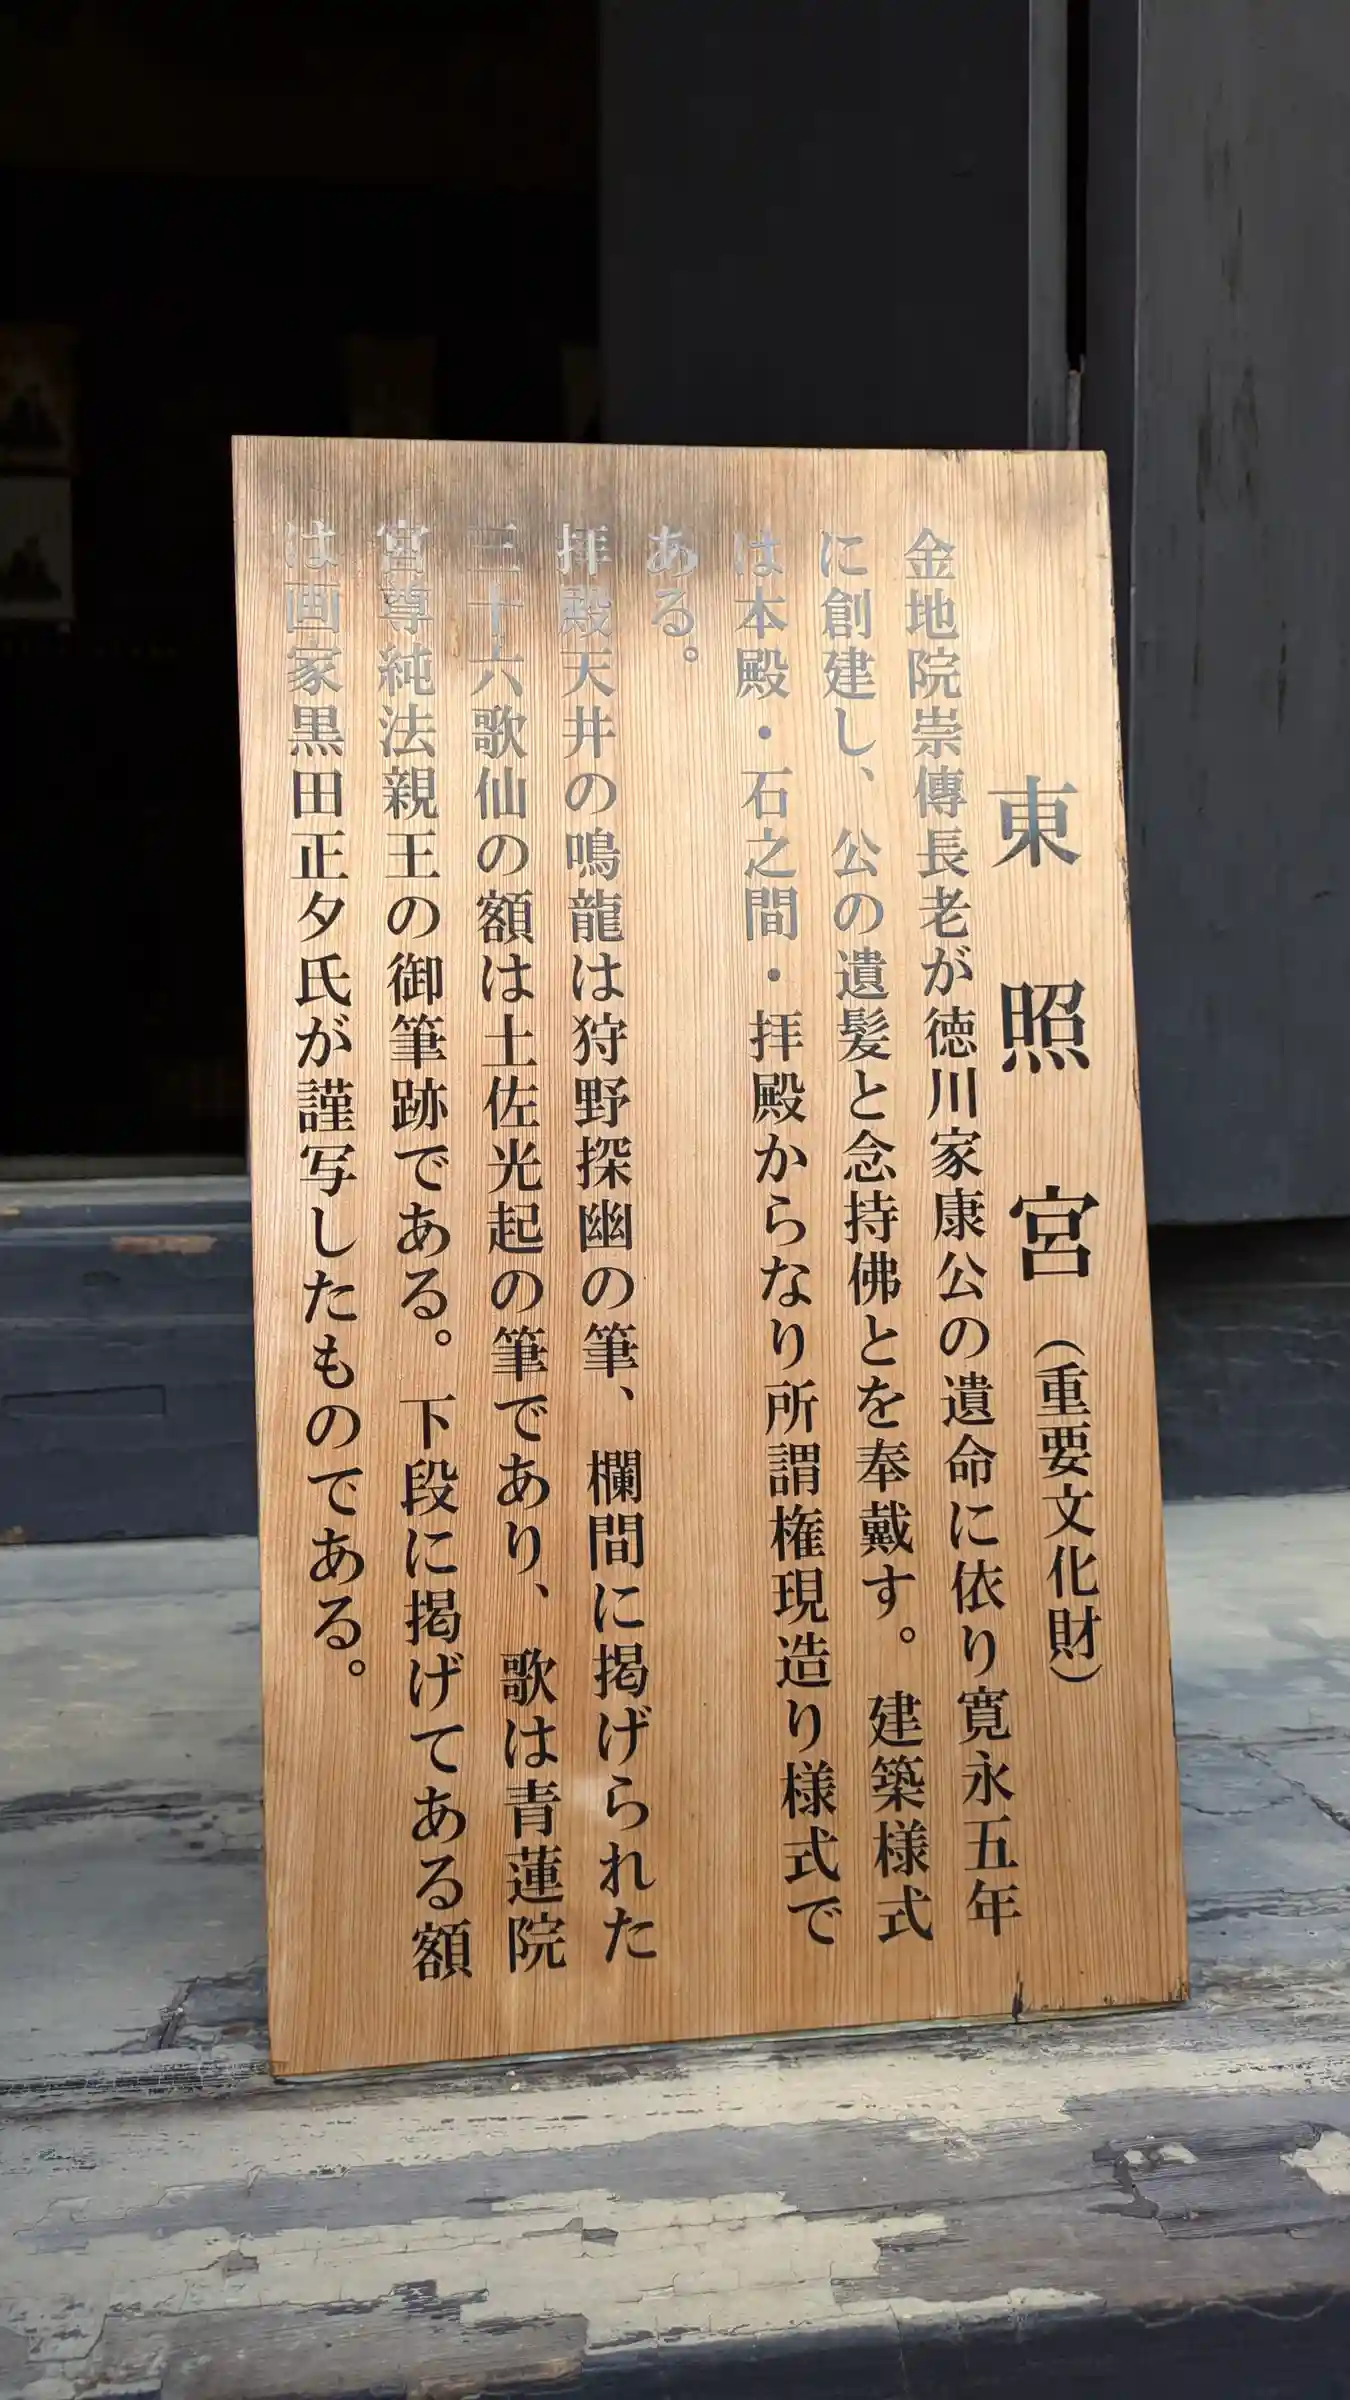 東照宮(重要文化財)
金地院崇傳長老が徳川家康公の遺命に依り寛永五年
に創建し、公の遺髪と念持佛とを奉戴す。建築様式
は本殿・石之間・拝殿からなり所謂権現造り様式で
ある。
拝殿天井の鳴龍は狩野探幽の筆、欄間に掲げられた
三十六歌仙の額は土佐光起の筆であり、歌は青蓮院
宮尊純法親王の御筆跡である。下段に掲げてある額
は画家黒田正夕氏が謹写したものである。